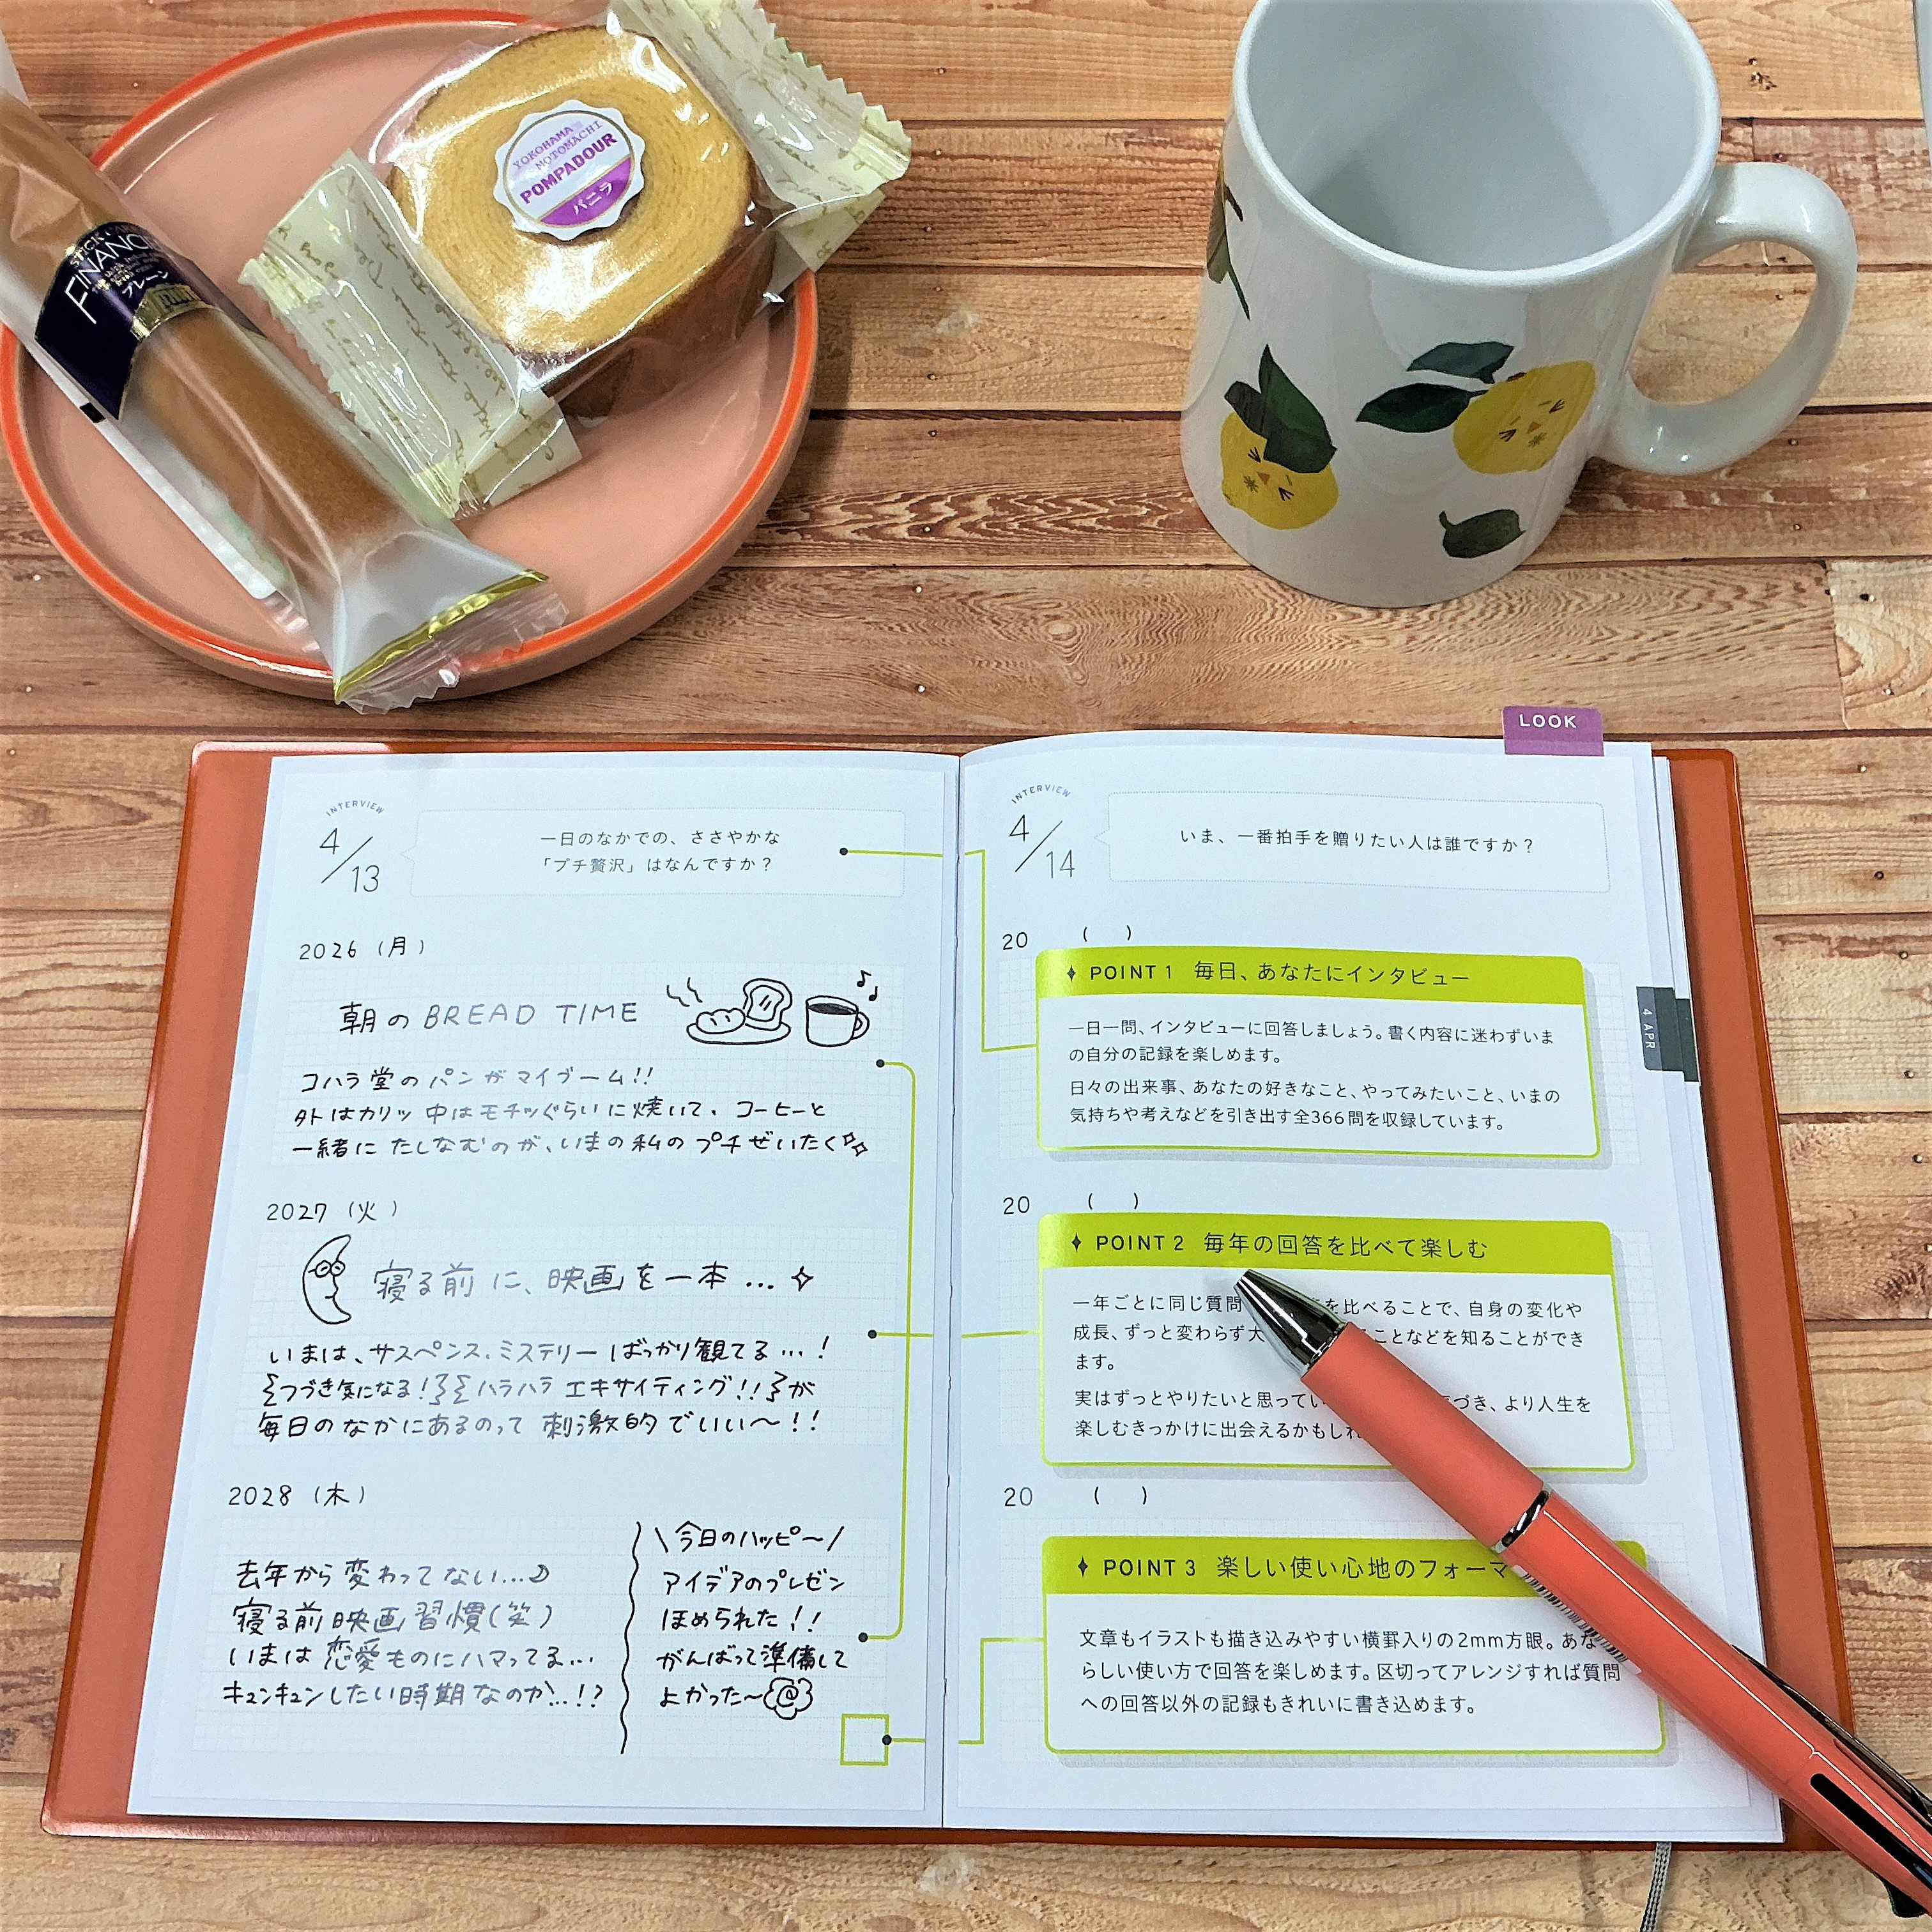 YOKOHAMA
MOTOMACHI
POMPADOUR
バニラ
STICK
FINANC
プレーン
LOOK
INTERVIEW
4/13
一日のなかでの、ささやかな
「プチ贅沢」はなんですか？
2026（月）
朝のBREAD TIME
コハラ堂のパンがマイブーム!!
外はカリッ中はモチッぐらいに焼いて、コーヒーと
一緒にたしなむのが、いまの私のプチぜいたく
2027（火）
寝る前に、映画を一本…
いまは、サスペンス、ミステリーばっかり観てる…！
つづき気になる！ ハラハラエキサイティング!! が
毎日のなかにあるのって刺激的でいい〜！！
2028（木）
去年から変わってない…
寝る前映画習慣(笑)
いまは恋愛ものにハマってる…
キュンキュンしたい時期なのか…!?
\今日のハッピ〜/
アイデアのプレゼン
ほめられた！！
がんばって準備して
よかった〜
INTERVIEW
4/14
いま、一番拍手を贈りたい人は誰ですか？
20 （ ）
POINT 1 毎日、あなたにインタビュー
一日一問、インタビューに回答しましょう。書く内容に迷わずいま
の自分の記録を楽しめます。
日々の出来事、あなたの好きなこと、やってみたいこと、いまの
気持ちや考えなどを引き出す全366問を収録しています。
4 APR
20 （ ）
POINT 2 毎年の回答を比べて楽しむ
一年ごとに同じ質問 を比べることで、自身の変化や
成長、ずっと変わらず大 ことなどを知ることができ
ます。
実はずっとやりたいと思ってい づき、より人生を
楽しむきっかけに出会えるかもしれ
20 （ ）
POINT 3 楽しい使い心地のフォーマ
文章もイラストも描き込みやすい横罫入りの2mm方眼。あな
らしい使い方で回答を楽しめます。区切ってアレンジすれば質問
への回答以外の記録もきれいに書き込めます。